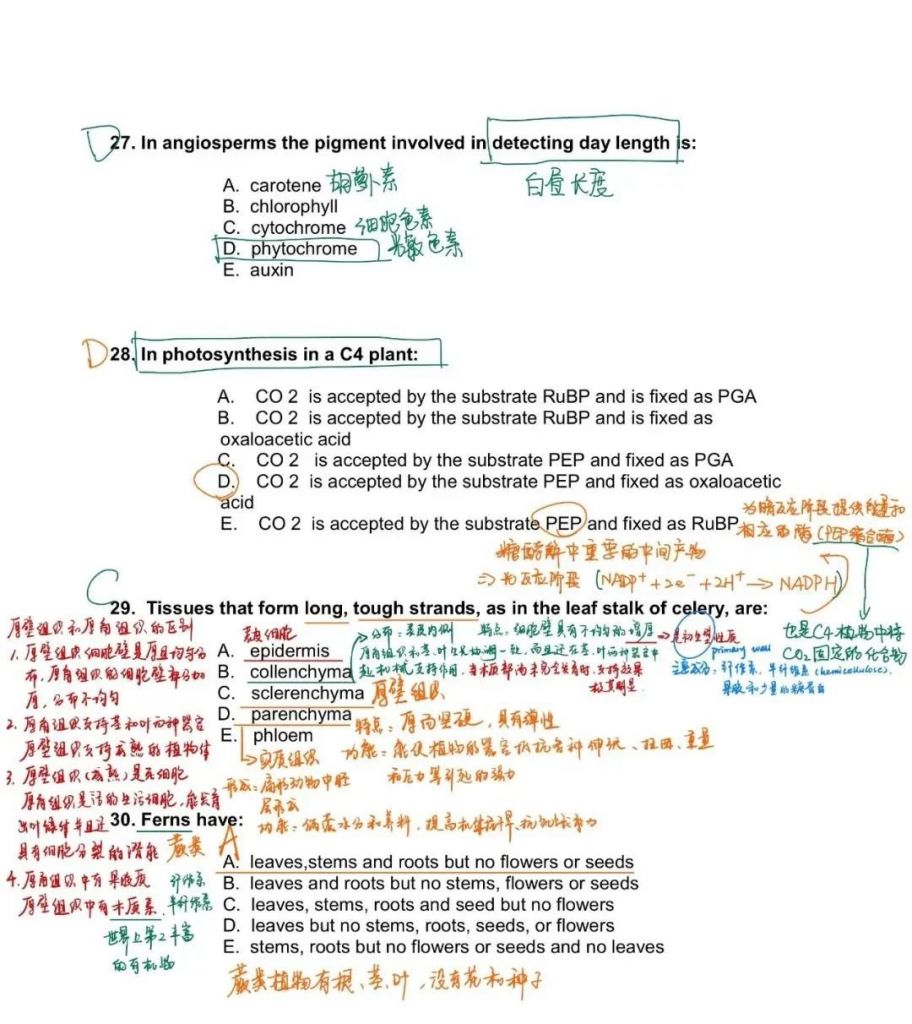 D 27. In angiosperms the pigment involved in detecting day length is:
白昼长度
A. carotene 胡萝卜素
B. chlorophyll
C. cytochrome 细胞色素
D. phytochrome 光敏色素
E. auxin
D 28. In photosynthesis in a C4 plant:
A. CO 2 is accepted by the substrate RuBP and is fixed as PGA
B. CO 2 is accepted by the substrate RuBP and is fixed as
oxaloacetic acid
C. CO 2 is accepted by the substrate PEP and fixed as PGA
D. CO 2 is accepted by the substrate PEP and fixed as oxaloacetic
acid
E. CO 2 is accepted by the substrate PEP and fixed as RuBP
为暗反应阶段提供能量和
相应的酶(PEP羧合酶)
糖酵解中重要的中间产物
⇒ 光反应阶段 (NADP⁺+2e⁻+2H⁺→NADPH)
也是C4植物中将
CO₂固定的化合物
C
29. Tissues that form long, tough strands, as in the leaf stalk of celery, are:
表皮细胞
A. epidermis
B. collenchyma
C. sclerenchyma 厚壁组织
D. parenchyma
E. phloem
分布:表皮内侧 特点:细胞壁具有不均匀的增厚 → 是初生壁性质
primary wall
厚角组织和茎、叶生长协调一致,而且还在茎、叶而种器官中
起和机械支持作用,
主要成分:纤维素,半纤维素(hemicellulose),
果胶和少量的糖蛋白
特点:厚而坚硬,具有弹性
功能:能使植物的器官抵抗各种伸张、扭曲、重量
和压力等引起的强力
实质组织
形成:扁形动物中胚
层形成
功能:储蓄水分和养料,提高
厚壁组织和厚角组织的区别
1. 厚壁组织细胞壁是厚且均匀分
布,厚角组织的细胞壁部分加
厚,分布不均匀
2. 厚角组织支持茎和叶而种器官
厚壁组织支持成熟的植物体
3. 厚壁组织(成熟)是死细胞
厚角组织是活的生活细胞,能发育
出叶绿体并且还
具有细胞分裂的潜能
4. 厚角组织中有果胶质 纤维素
厚壁组织中有木质素 半纤维素
世界上第2丰富
的有机物
30. Ferns have:
蕨类 A
A. leaves,stems and roots but no flowers or seeds
B. leaves and roots but no stems, flowers or seeds
C. leaves, stems, roots and seed but no flowers
D. leaves but no stems, roots, seeds, or flowers
E. stems, roots but no flowers or seeds and no leaves
蕨类植物有根、茎、叶,没有花和种子